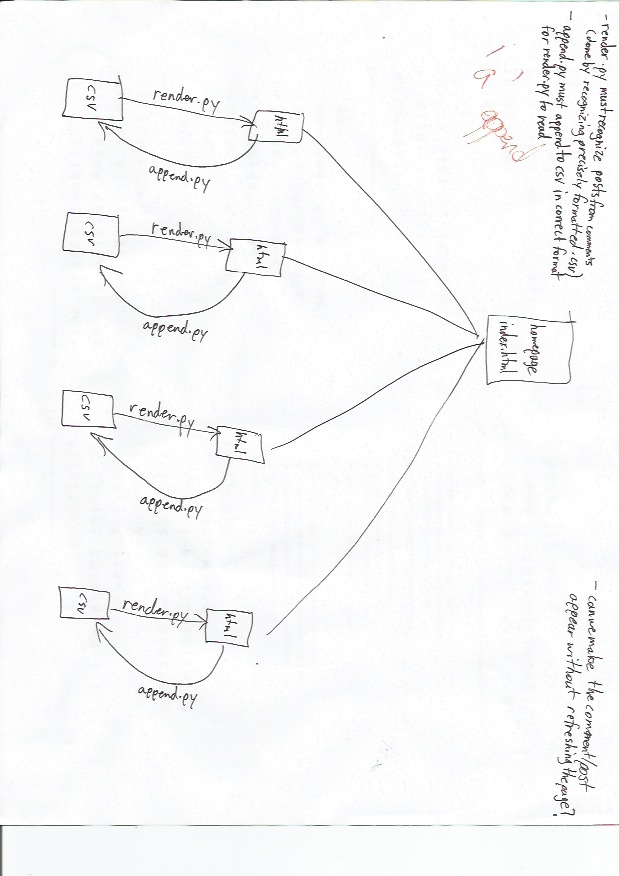 - render.py must recognize posts from comments
(done by recognizing precisely formatted .csv)
- append.py must append to csv in correct format
for render.py to read
- can we make the comment/post
appear without refreshing the page?
'a' append
homepage
index.html
html
html
html
html
render.py
append.py
render.py
append.py
render.py
append.py
render.py
append.py
csv
csv
csv
csv